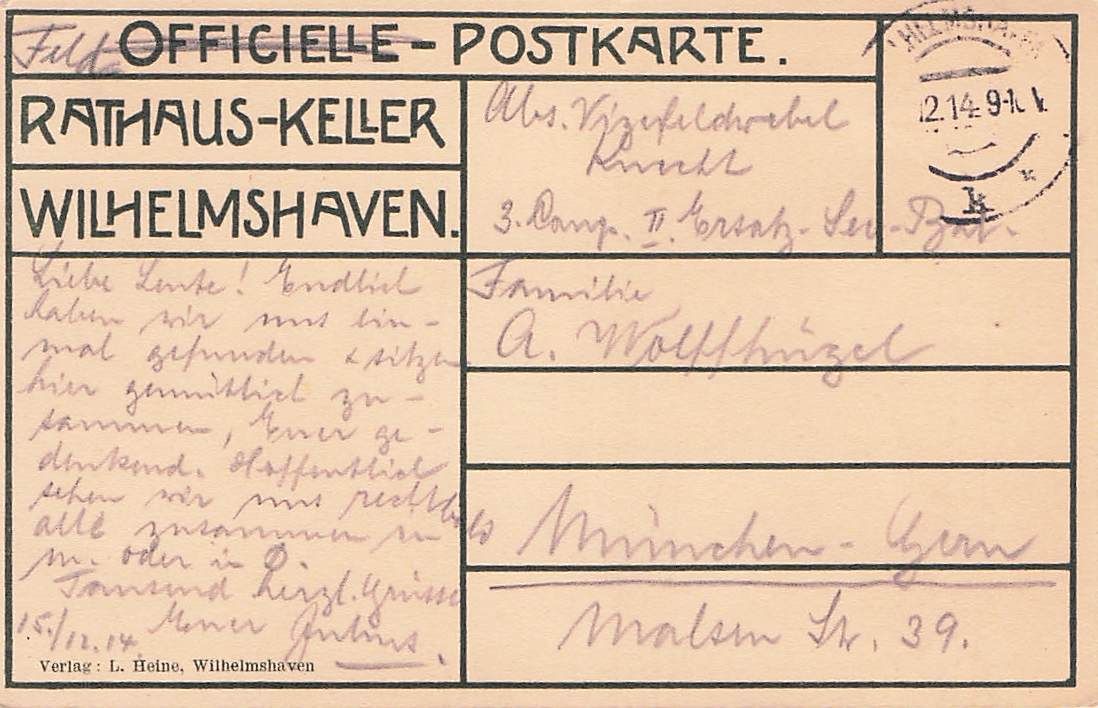 Feld OFFICIELLE - POSTKARTE.
RATHAUS-KELLER
WILHELMSHAVEN.
12.14. 9-10 V.
k
Abs. Vizefeldwebel
Knecht
3. Comp. II. Ersatz-See-Bat.
Liebe Leute! Endlich
haben wir uns ein-
mal gefunden & sitzen
hier gemütlich zu-
sammen, Euer ge-
denkend. Hoffentlich
sehen wir uns recht bald
alle zusammen in
M. oder in D.
Tausend herzl. Grüsse
15./12.14. Euer Julius.
Familie
A. Wolffhügel
München - Gern
Malsen Str. 39.
Verlag: L. Heine, Wilhelmshaven